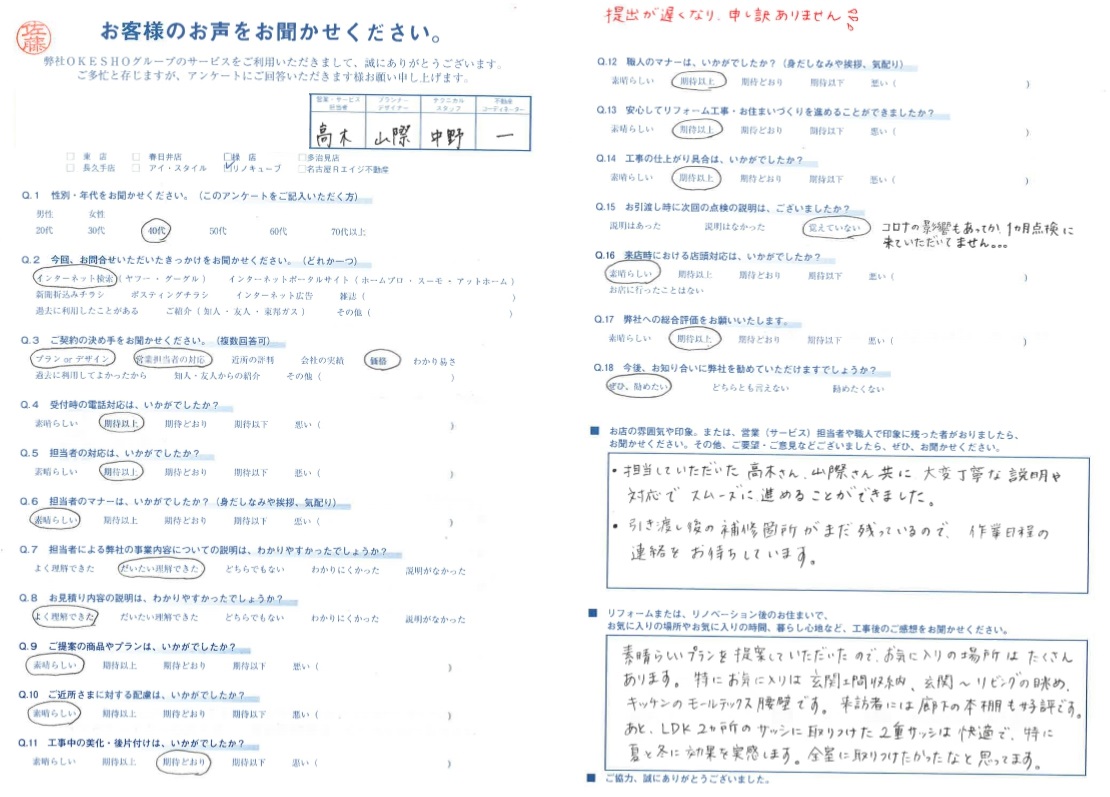 佐藤
お客様のお声をお聞かせください。
弊社OKESHOグループのサービスをご利用いただきまして、誠にありがとうございます。
ご多忙と存じますが、アンケートにご回答いただきます様お願い申し上げます。
営業・サービス担当者 プランナーデザイナー テクニカルスタッフ 不動産コーディネーター
高木 山際 中野 ー
□ 東 店 □ 春日井店 □緑 店 □多治見店
□ 長久手店 □ アイ・スタイル ☑リノキューブ □名古屋月エイジ不動産
Q.1 性別・年代をお聞かせください。(このアンケートをご記入いただく方)
男性 女性
20代 30代 40代 50代 60代 70代以上
Q.2 今回、お問合せいただいたきっかけをお聞かせください。(どれか一つ)
インターネット検索(ヤフー・グーグル) インターネットポータルサイト(ホームプロ・スーモ・アットホーム)
新聞折込みチラシ ポスティングチラシ インターネット広告 雑誌( )
過去に利用したことがある ご紹介(知人・友人・東邦ガス) その他( )
Q.3 ご契約の決め手をお聞かせください。(複数回答可)
プラン or デザイン 営業担当者の対応 近所の評判 会社の実績 価格 わかり易さ
過去に利用してよかったから 知人・友人からの紹介 その他( )
Q.4 受付時の電話対応は、いかがでしたか?
素晴らしい 期待以上 期待どおり 期待以下 悪い( )
Q.5 担当者の対応は、いかがでしたか?
素晴らしい 期待以上 期待どおり 期待以下 悪い( )
Q.6 担当者のマナーは、いかがでしたか?(身だしなみや挨拶、気配り)
素晴らしい 期待以上 期待どおり 期待以下 悪い( )
Q.7 担当者による弊社の事業内容についての説明は、わかりやすかったでしょうか?
よく理解できた だいたい理解できた どちらでもない わかりにくかった 説明がなかった
Q.8 お見積り内容の説明は、わかりやすかったでしょうか?
よく理解できた だいたい理解できた どちらでもない わかりにくかった 説明がなかった
Q.9 ご提案の商品やプランは、いかがでしたか?
素晴らしい 期待以上 期待どおり 期待以下 悪い( )
Q.10 ご近所さまに対する配慮は、いかがでしたか?
素晴らしい 期待以上 期待どおり 期待以下 悪い( )
Q.11 工事中の美化・後片付けは、いかがでしたか?
素晴らしい 期待以上 期待どおり 期待以下 悪い( )
提出が遅くなり、申し訳ありません
Q.12 職人のマナーは、いかがでしたか?(身だしなみや挨拶、気配り)
素晴らしい 期待以上 期待どおり 期待以下 悪い( )
Q.13 安心してリフォーム工事・お住まいづくりを進めることができましたか?
素晴らしい 期待以上 期待どおり 期待以下 悪い( )
Q.14 工事の仕上がり具合は、いかがでしたか?
素晴らしい 期待以上 期待どおり 期待以下 悪い( )
Q.15 お引渡し時に次回の点検の説明は、ございましたか?
説明はあった 説明はなかった 覚えていない コロナの影響もあってか、1ヵ月点検に
来ていただいてません。。。
Q.16 来店時における店頭対応は、いかがでしたか?
素晴らしい 期待以上 期待どおり 期待以下 悪い( )
お店に行ったことはない
Q.17 弊社への総合評価をお願いいたします。
素晴らしい 期待以上 期待どおり 期待以下 悪い( )
Q.18 今後、お知り合いに弊社を勧めていただけますでしょうか?
ぜひ、勧めたい どちらとも言えない 勧めたくない
■ お店の雰囲気や印象。または、営業(サービス)担当者や職人で印象に残った者がおりましたら、
お聞かせください。その他、ご要望・ご意見などございましたら、ぜひ、お聞かせください。
・担当していただいた 高木さん、山際さん共に 大変丁寧な説明や
対応で スムーズに進めることができました。
・引き渡し後の補修箇所がまだ残っているので、作業日程の
連絡を お待ちしています。
■ リフォームまたは、リノベーション後のお住まいで、
お気に入りの場所やお気に入りの時間、暮らし心地など、工事後のご感想をお聞かせください。
素晴らしいプランを提案していただいたので、お気に入りの場所は たくさん
あります。特にお気に入りは 玄関土間収納、玄関〜リビングの眺め、
キッチンのモールテックス腰壁です。来訪者には廊下の本棚も好評です。
あと、LDK2ヵ所のサッシに取りつけた2重サッシは快適で、特に
夏と冬に効果を実感します。全室に取りつけたかったなと思ってます。
■ ご協力、誠にありがとうございました。